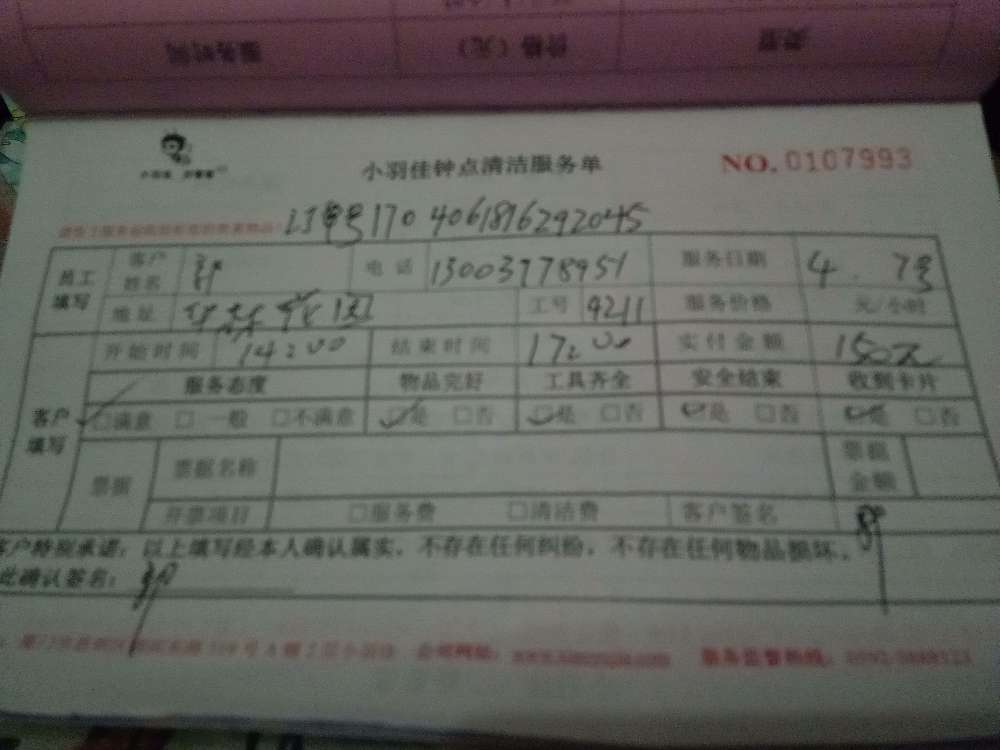 服务时间 价格（元） 类型
小羽佳钟点清洁服务单 NO.0107993
订单号1704061816292045
员工填写 客户姓名 电话 13003778951 服务日期 4.7号
地址 工号 9211 服务价格 元/小时
客户填写 开始时间 14:00 结束时间 17:00 实付金额 150元
服务态度 物品完好 工具齐全 安全结束 收到卡片
□满意 □一般 □不满意 □是 □否 □是 □否 □是 □否 □是 □否
票据 票据名称 票据金额
开票项目 □服务费 □清洁费 客户签名
客户特别承诺：以上填写经本人确认属实，不存在任何纠纷，不存在任何物品损坏。
此确认签名：
公司网址： 服务监督热线：